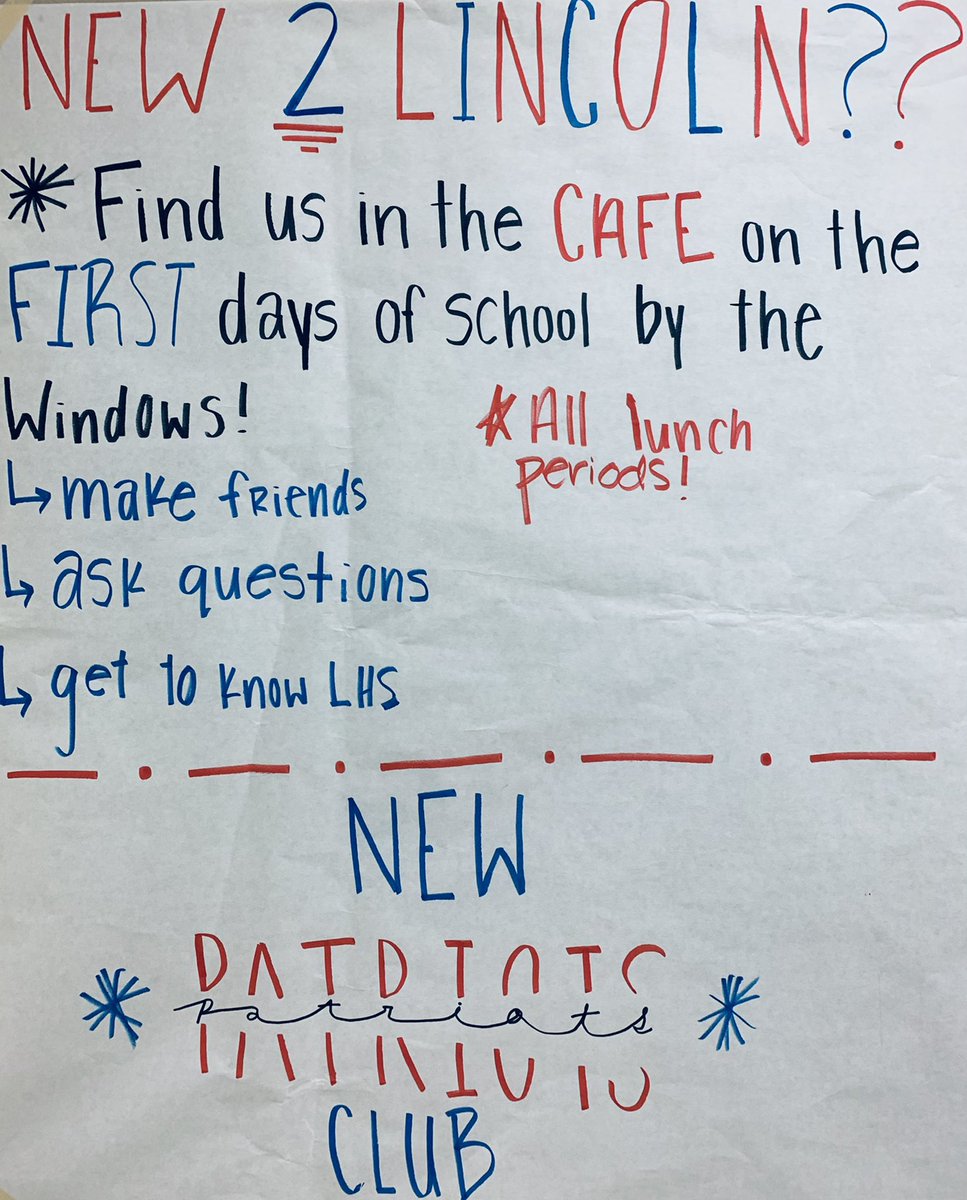 NEW 2 LINCOLN??
* Find us in the CAFE on the
FIRST days of school by the
Windows!
* All lunch
periods!
↳ make friends
↳ ask questions
↳ get to know LHS
NEW
PATRIOTS
patriots
CLUB